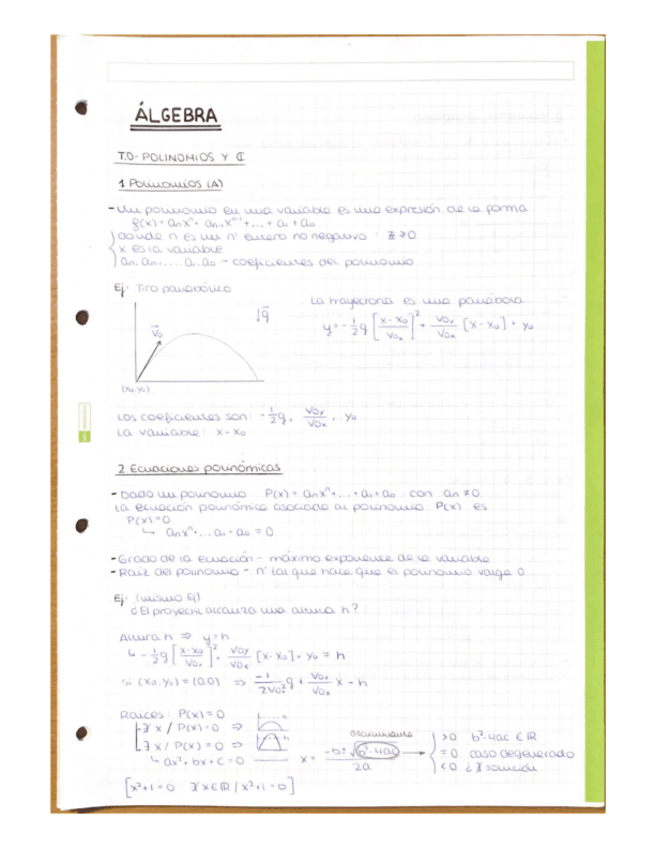 ÁLGEBRA
T.0- POLINOMIOS Y ℂ
1 Polinomios (A)
- Un polinomio en una variable es una expresión de la forma
g(x) = aₙxⁿ + aₙ₋₁xⁿ⁻¹ + ... + a₁ + a₀
donde n es un nº entero no negativo : ℤ ≥ 0
x es la variable
aₙ, aₙ₋₁, ... a₁, a₀ → coeficientes del polinomio
Ej: Tiro parabólico
La trayectoria es una parábola
↓g⃗
y = -1/2 g [x-x₀/V₀ₓ]² + V₀ᵧ/V₀ₓ [x-x₀] + y₀
V⃗₀
(x₀,y₀)
Los coeficientes son: -1/2 g, V₀ᵧ/V₀ₓ, y₀
La variable: x-x₀
2. Ecuaciones polinómicas
- Dado un polinomio P(x) = aₙxⁿ + ... + a₁ + a₀ con aₙ ≠ 0
la ecuación polinómica asociada al polinomio P(x) es
P(x) = 0
↳ aₙxⁿ + ... a₁ + a₀ = 0
- Grado de la ecuación - máximo exponente de la variable
- Raíz del polinomio - nº tal que hace que el polinomio valga 0
Ej: (mismo ej)
¿El proyectil alcanza una altura h?
Altura h ⇒ y = h
↳ -1/2 g [x-x₀/V₀ₓ]² + V₀ᵧ/V₀ₓ [x-x₀] + y₀ = h
si (x₀,y₀) = (0,0) ⇒ -1/2V₀ₓ² g + V₀ᵧ/V₀ₓ x - h
Raíces: P(x) = 0
∄ x / P(x) = 0 ⇒
∃ x / P(x) = 0 ⇒
↳ ax² + bx + c = 0
x = -b ± √b²-4ac / 2a
discriminante
> 0 b²-4ac ∈ ℝ
= 0 caso degenerado
< 0 ¿∄ solución
[x²+1 = 0 ∄ x ∈ ℝ / x²+1 = 0]